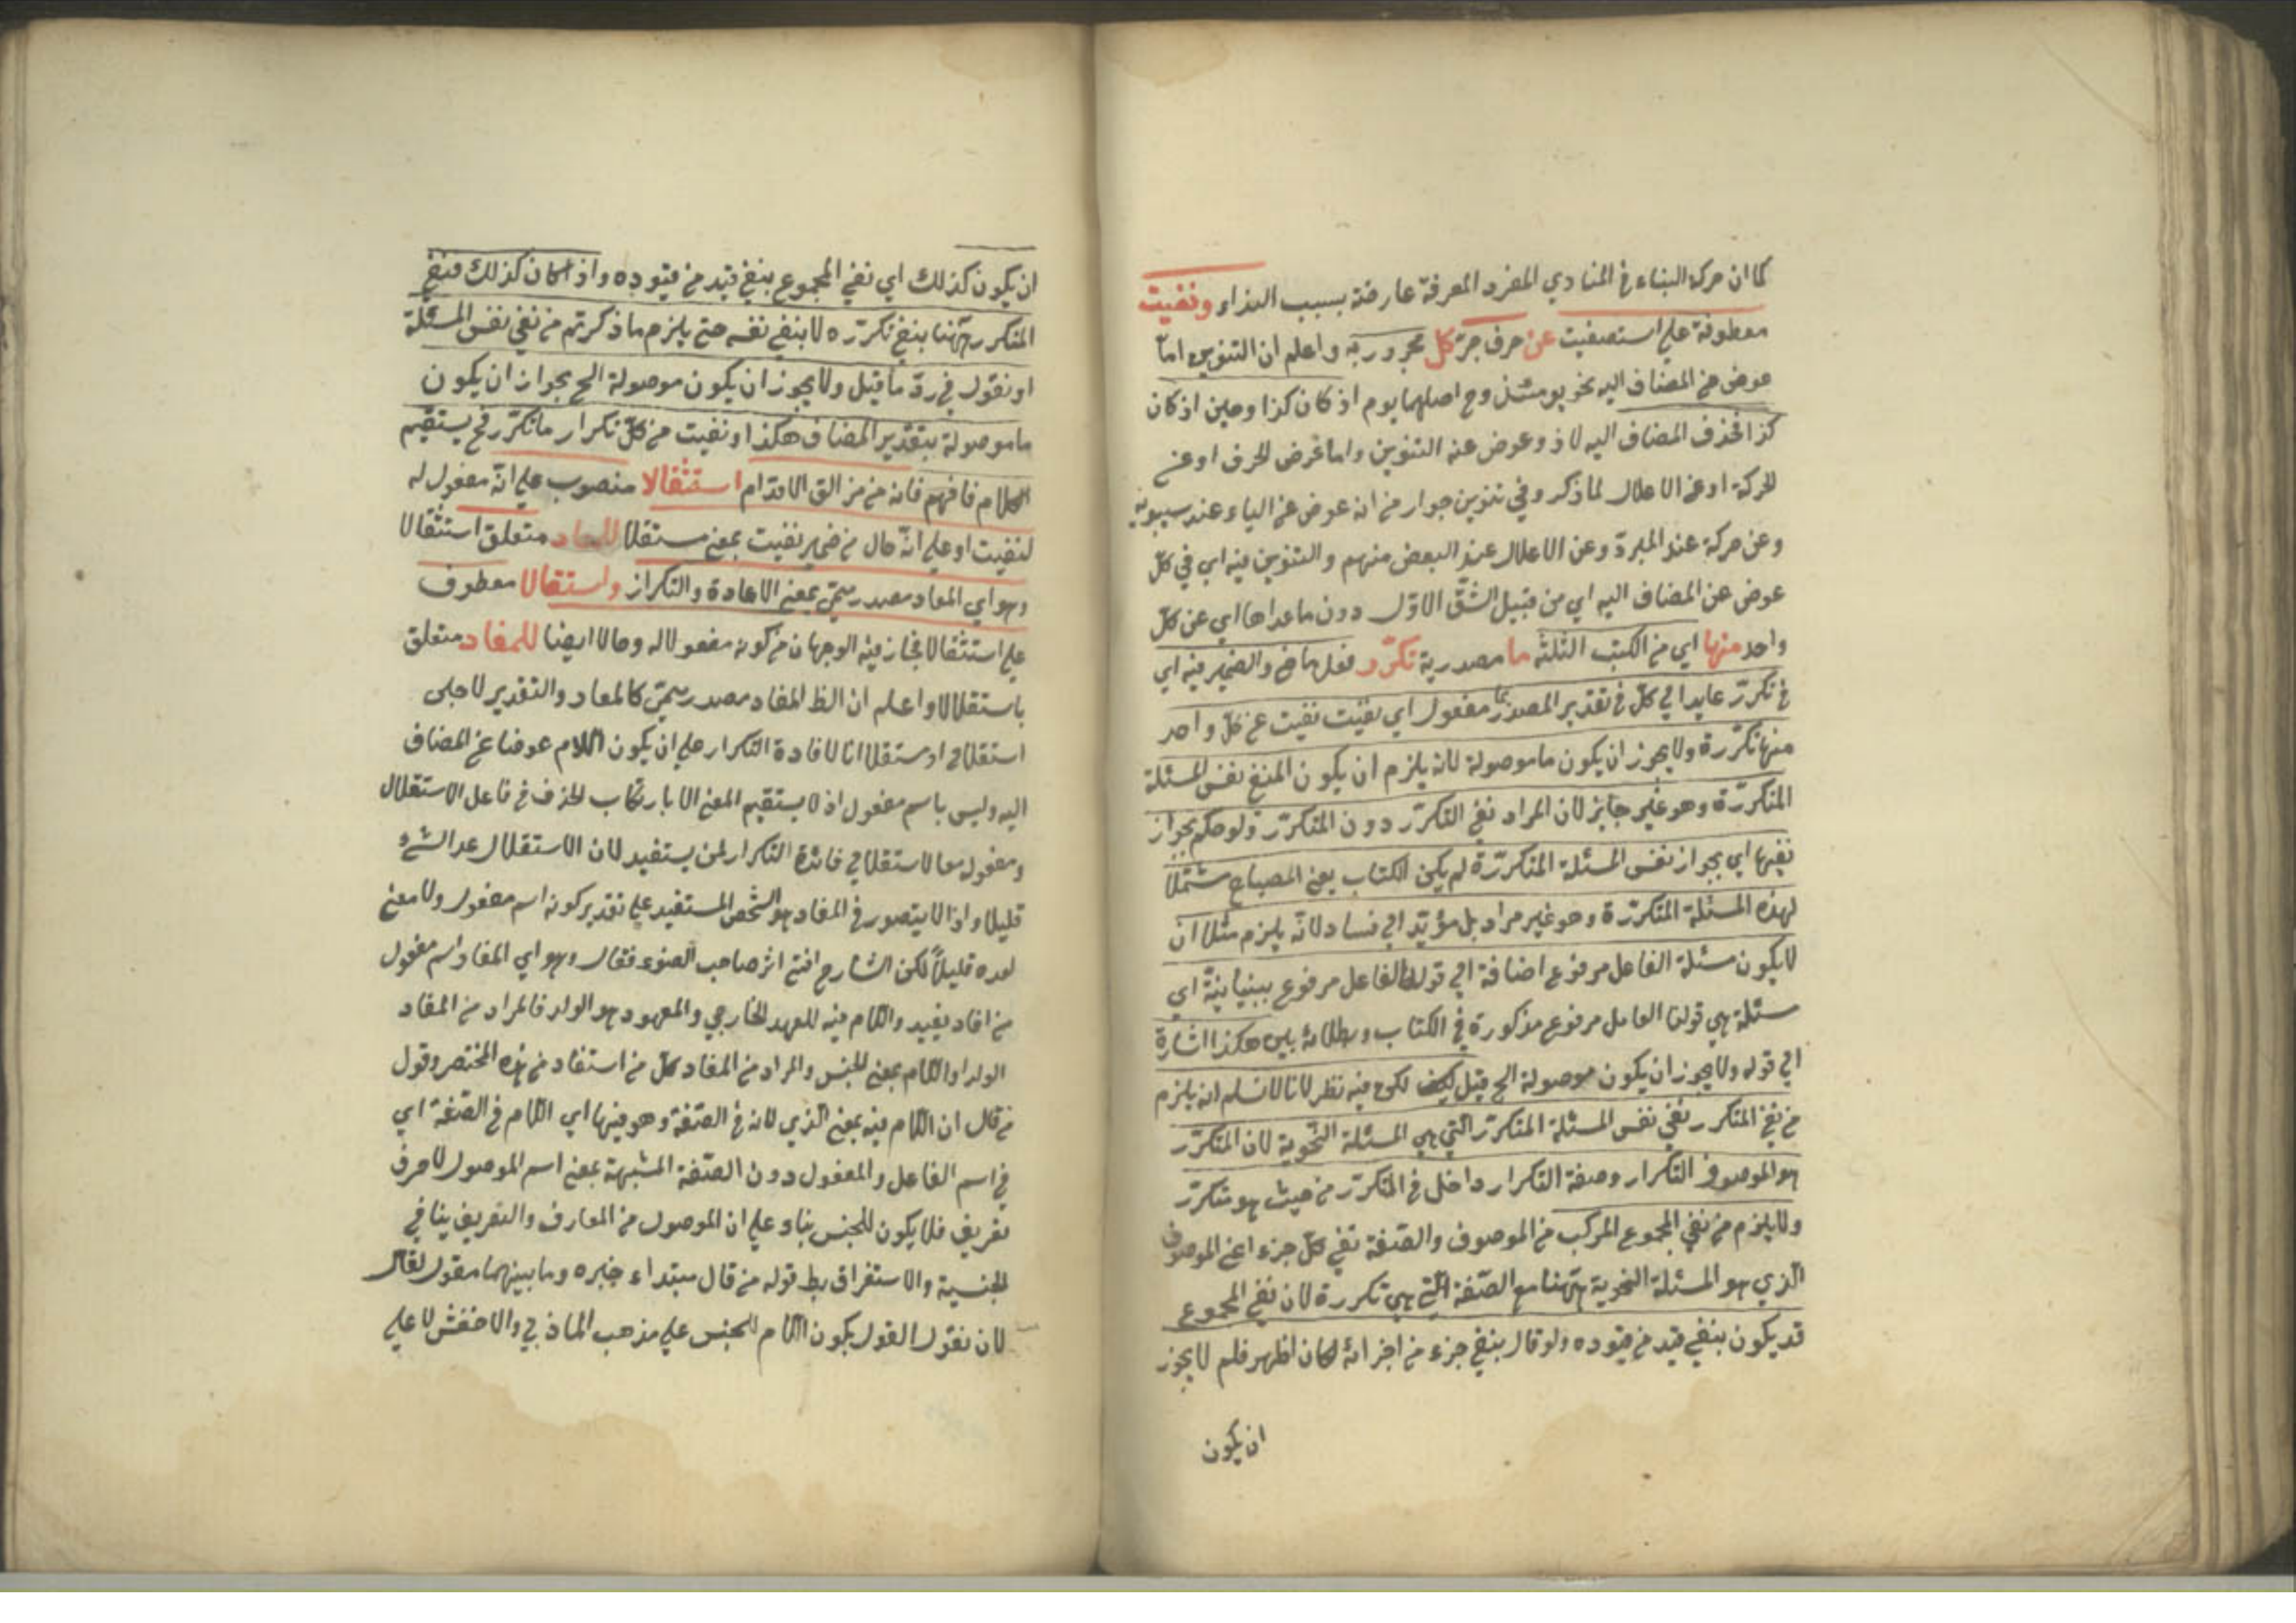 كما ان حركة البناء في المنادي المفرد المعرفة عارضة بسبب النداء ونفيت
معطوفة علي استصفيت عن حرف جرّ كل مجرور به واعلم ان التنوين امّا
عوض عن المضاف اليه نحو يومئذ وح اصلهما يوم اذ كان كذا وحين اذ كان
كذا فحذف المضاف اليه لاذ وعوض عنه التنوين واما عوض الحرف او عن
الحركة او عن الاعلال لما ذكر وفي تنوين جوار من انه عوض عن الياء عند سيبويه
وعن حركة عند المبردّ وعن الاعلال عند البعض منهم والتنوين فيه اي في كلّ
عوض عن المضاف اليه اي من قبيل الشقّ الاوّل دون ما عداها اي عن كلّ
واحد منها اي من الكتب الثلثة ما مصدرية تكرّر فعل ماض والضمير فيه اي
في تكررّ عايد الي كلّ في تقدير المصدر مفعول اي نفيت نفيت عن كلّ واحد
منها تكرّره ولا يجوز ان يكون ما موصولة لانه يلزم ان يكون المنفي نفس المسئلة
المتكررّة وهو غير جايز لان المراد نفي التكررّ دون المتكررّ ولو حكم بجواز
نفيها اي بجواز نفس المسئلة المتكررّة لم يكن الكتاب يعني المصباح مشتملا
لهذه المسئلة المتكررّة وهو غير مراد بل مؤيّد الي فساد لانّه يلزم مثلا ان
لا يكون مسئلة الفاعل مرفوع اضافة الي قوله الفاعل مرفوع بيانيّة اي
مسئلة هي قولنا الفاعل مرفوع مذكورة في الكتاب وبطلانه بين هكذا اشارة
الي قوله ولا يجوز ان يكون موصولة الخ قيل لكن فيه نظر لانا لا نسلم انه يلزم
من نفي المتكرر نفي نفس المسئلة المتكررّ التي هي المسئلة النحوية لان المتكررّ
هو الموصوف التكرار وصفة التكرار داخل في المتكررّ من حيث هو متكررّ
ولا يلزم من نفي المجموع المركب من الموصوف والصّفة نفي كلّ جزء اعني الموصوف
الّذي هو المسئلة النحوية ههنا مع الصّفة الّتي هي تكرره لان نفي المجموع
قد يكون بنفي قيد من قيوده ولو قال بنفي جزء من اجزائه لكان اظهر فلم لا يجوز
ان يكون
ان يكون كذلك اي نفي المجموع بنفي قيد من قيوده واذا كان كذلك فنفي
المتكرر ههنا بنفي تكررّه لا بنفي نفسه حتي يلزم ما ذكرتم من نفي نفس المسئلة
او نقول في ردّ ما قيل ولا يجوز ان يكون موصولة الخ بجواز ان يكون
ما موصولة بتقدير المضاف هكذا ونفيت من كلّ تكرار ما تكرّر فح يستقيم
الكلام فافهم فانه من مزالق الاقدام استثقالا منصوب علي انّه مفعول له
لنفيت او علي انّه حال من ضمير نفيت بمعني مستقلا للمعاد متعلق استثقالا
وهو اي المعاد مصدر ميمّي بمعني الاعادة والتكرار واستقلالا معطوف
علي استثقالا فجاز فيه الوجهان من كونه مفعولا له وحالا ايضا للمفاد متعلق
باستقلالا واعلم ان الظ المفاد مصدر ميمّي كالمعاد والتقدير لاجلي
استقلالي او مستقلا انا لافادة التكرار علي ان يكون اللام عوضا عن المضاف
اليه وليس باسم مفعول اذ لا يستقيم المعني الا بارتكاب الحذف في فاعل الاستقلال
ومفعوله معا لاستقلالي فائدة التكرار لمن يستفيد لان الاستقلال عد الشئ
قليلا واذا لا يتصور في المفاد هو الشخص المستفيد علي تقدير كونه اسم مفعول ولا معني
لعده قليلاً لكن الشارح اقتفي اثر صاحب الضوء فقال وهو اي المفاد اسم مفعول
من افاد يفيد واللام فيه للعهد الخارجي والمعهود هو الولد فالمراد من المفاد
الولد او اللام بمعني للجنس والمراد من المفاد كلّ من استفاد من هذه المختصر وقول
من قال ان اللام فيه بمعني الّذي لانه في الصّفة وهو فيها اي اللام في الصّفة اي
في اسم الفاعل والمفعول دون الصّفة المشبهة بمعني اسم الموصول لا حرف
تعريف فلا يكون للجنس بناء علي ان الموصول من المعارف والتعريف ينافي
الجنسية والاستغراق بط قوله من قال مبتداء خبره وما بينهما مقول لقال
لان نقول القول بكون اللام للجنس علي مذهب الماذني والاخفش لا علي